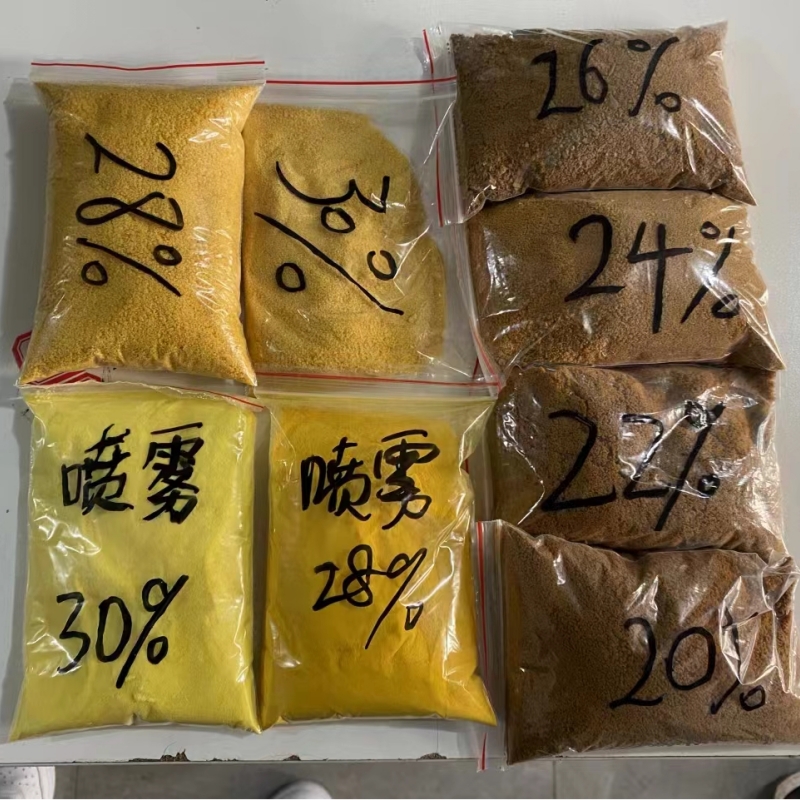 28%
30%
26%
24%
22%
20%
喷雾
30%
喷雾
28%